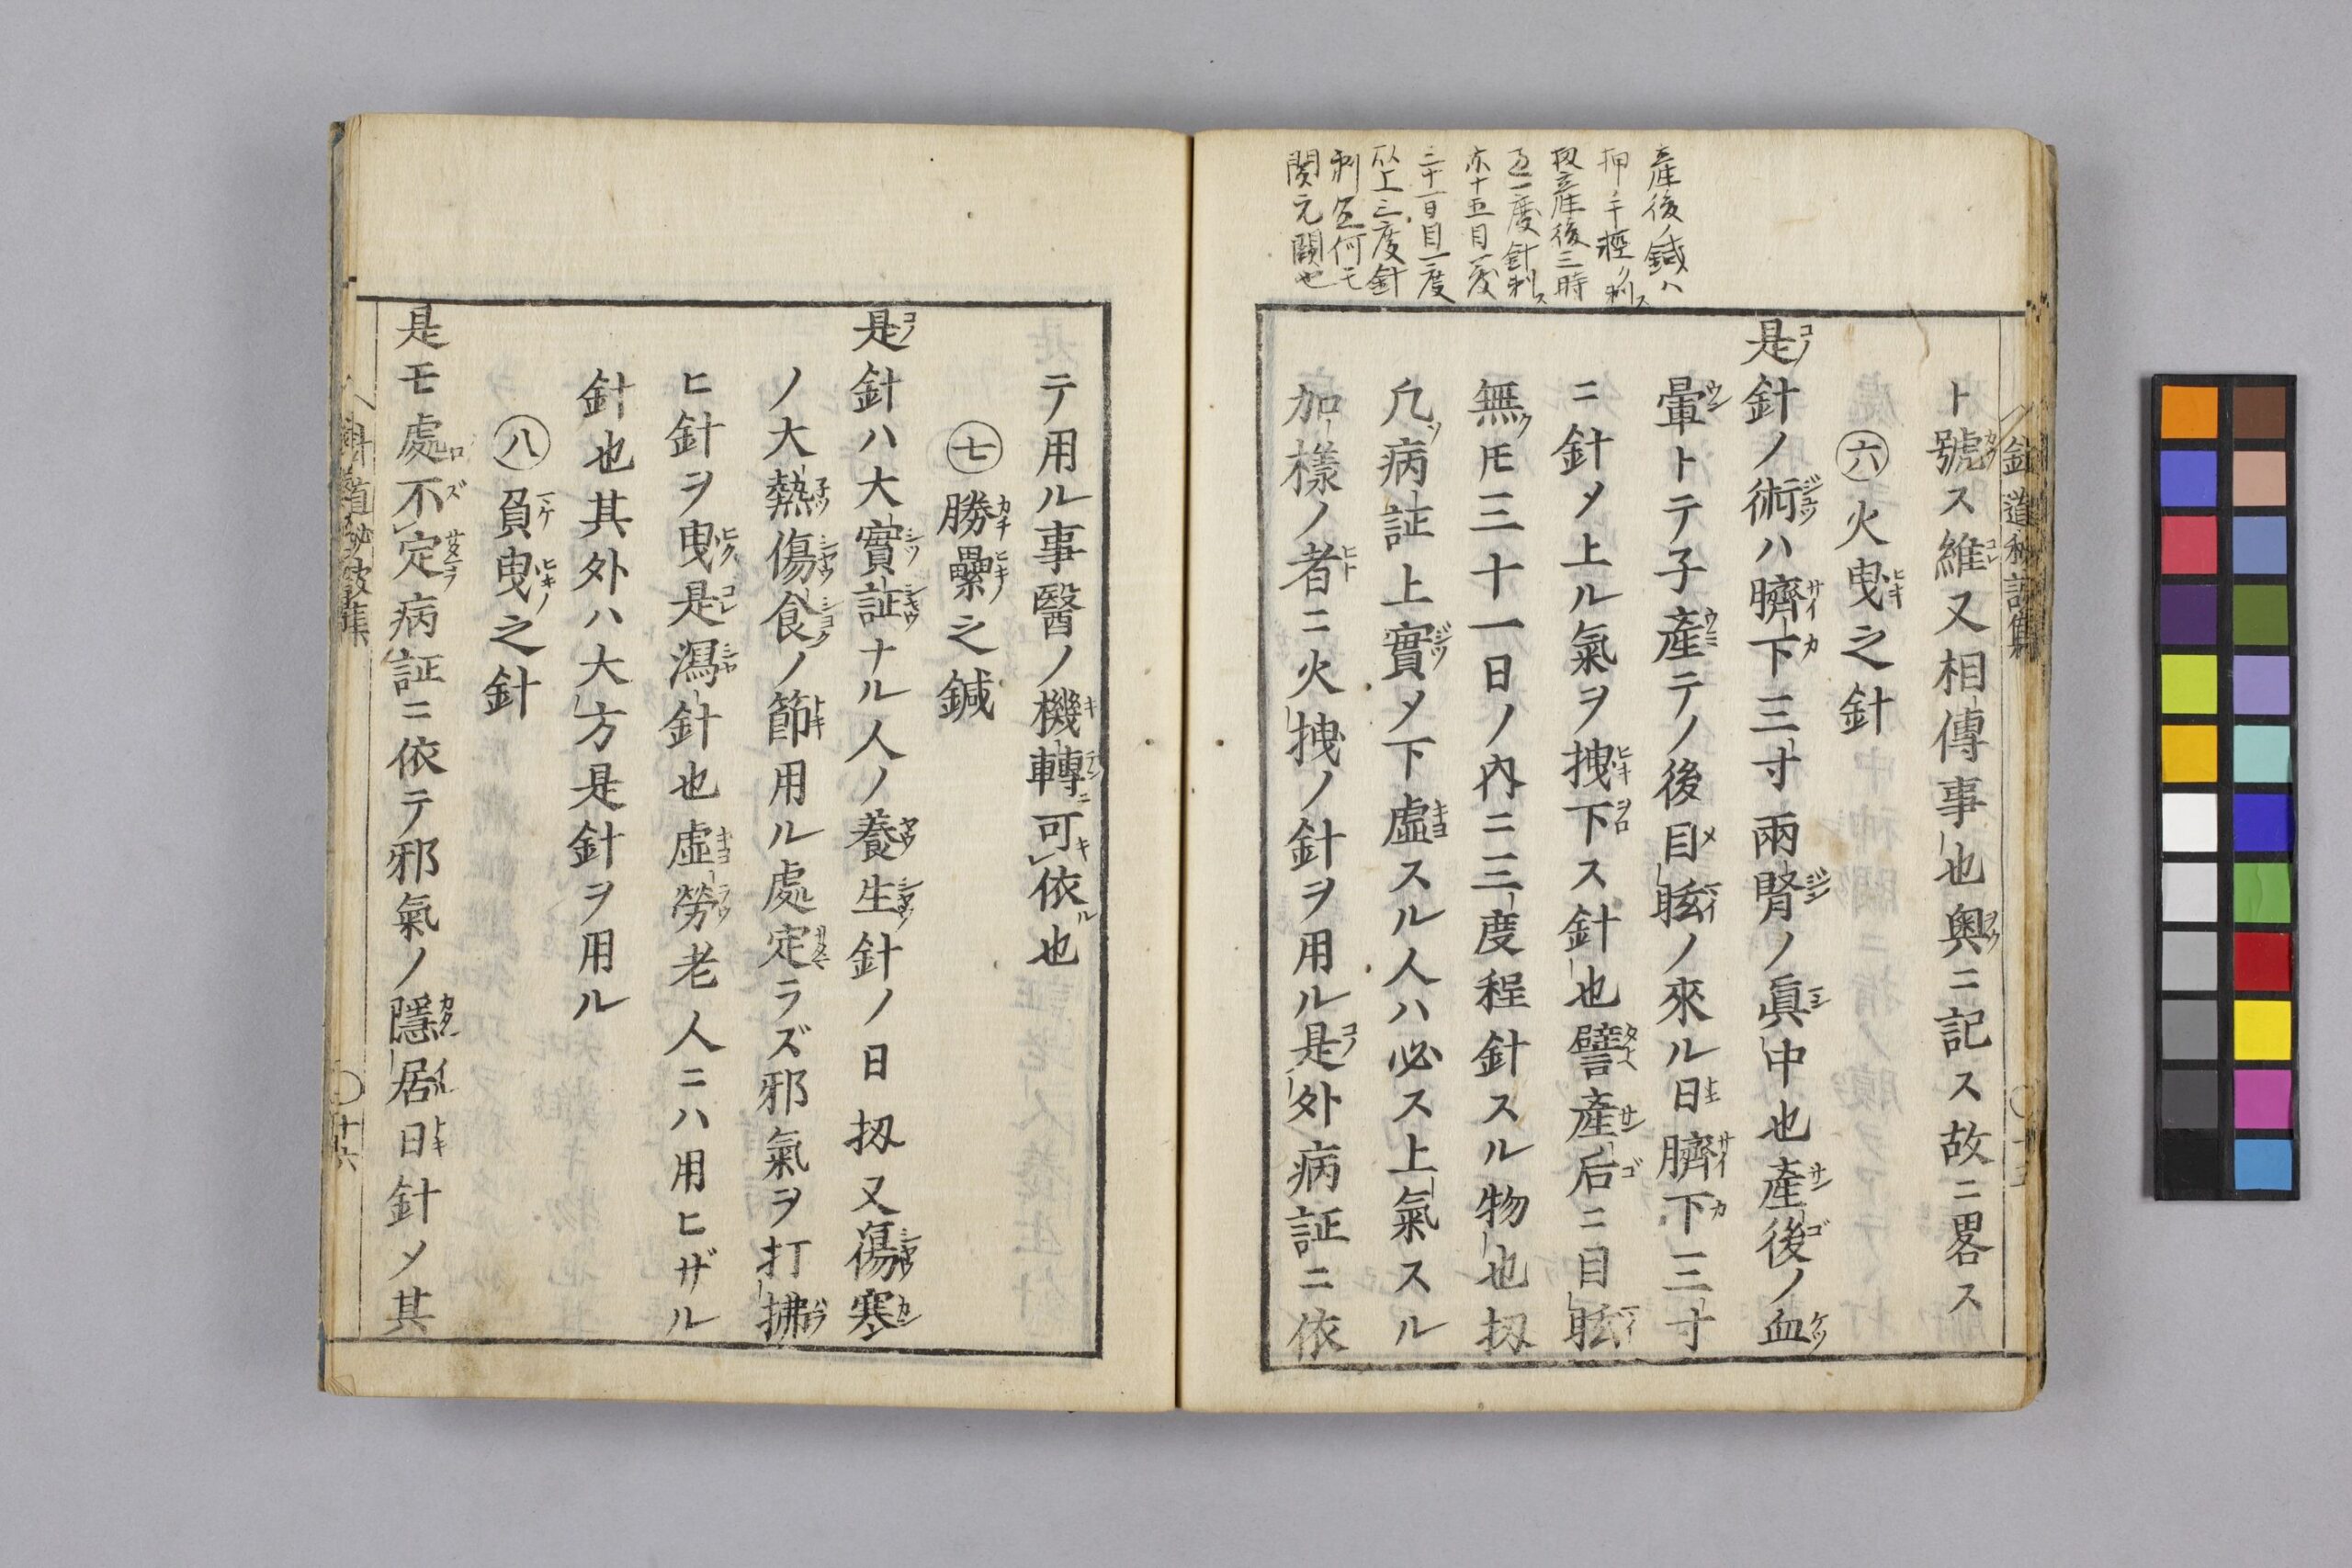 針道秘訣集
産後ノ鍼ハ
扨産後三時
過一度針刺ス
亦十五日目一度
三十一日目一度
以上三度針
刺
関元
ト號ス維又相傳事也奥ニ記ス故ニ畧ス
㊅火曳之針
是針ノ術ハ臍下三寸兩腎ノ眞中也産後ノ血
暈トテ子産テノ後目眩ノ來ル日臍下三寸
ニ針メ上ル氣ヲ拽下ス針也譬産后ニ目眩
無モ三十一日ノ內ニ三度程針スル物也扨
凢病証上實メ下虛スル人ハ必ス上氣スル
加樣ノ者ニ火拽ノ針ヲ用ル是外病証ニ依
テ用ル事醫ノ機轉可依也
㊆勝纍之鍼
是針ハ大實証ナル人ノ養生針ノ日扨又傷寒
ノ大熱傷食ノ節用ル處定ラズ邪氣ヲ打拂
ヒ針ヲ曳是瀉針也虛勞老人ニハ用ヒザル
針也其外ハ大方是針ヲ用ル
㊇負曳之針
是モ處不定病証ニ依テ邪氣ノ隱居日針メ其
針道秘訣集
十六